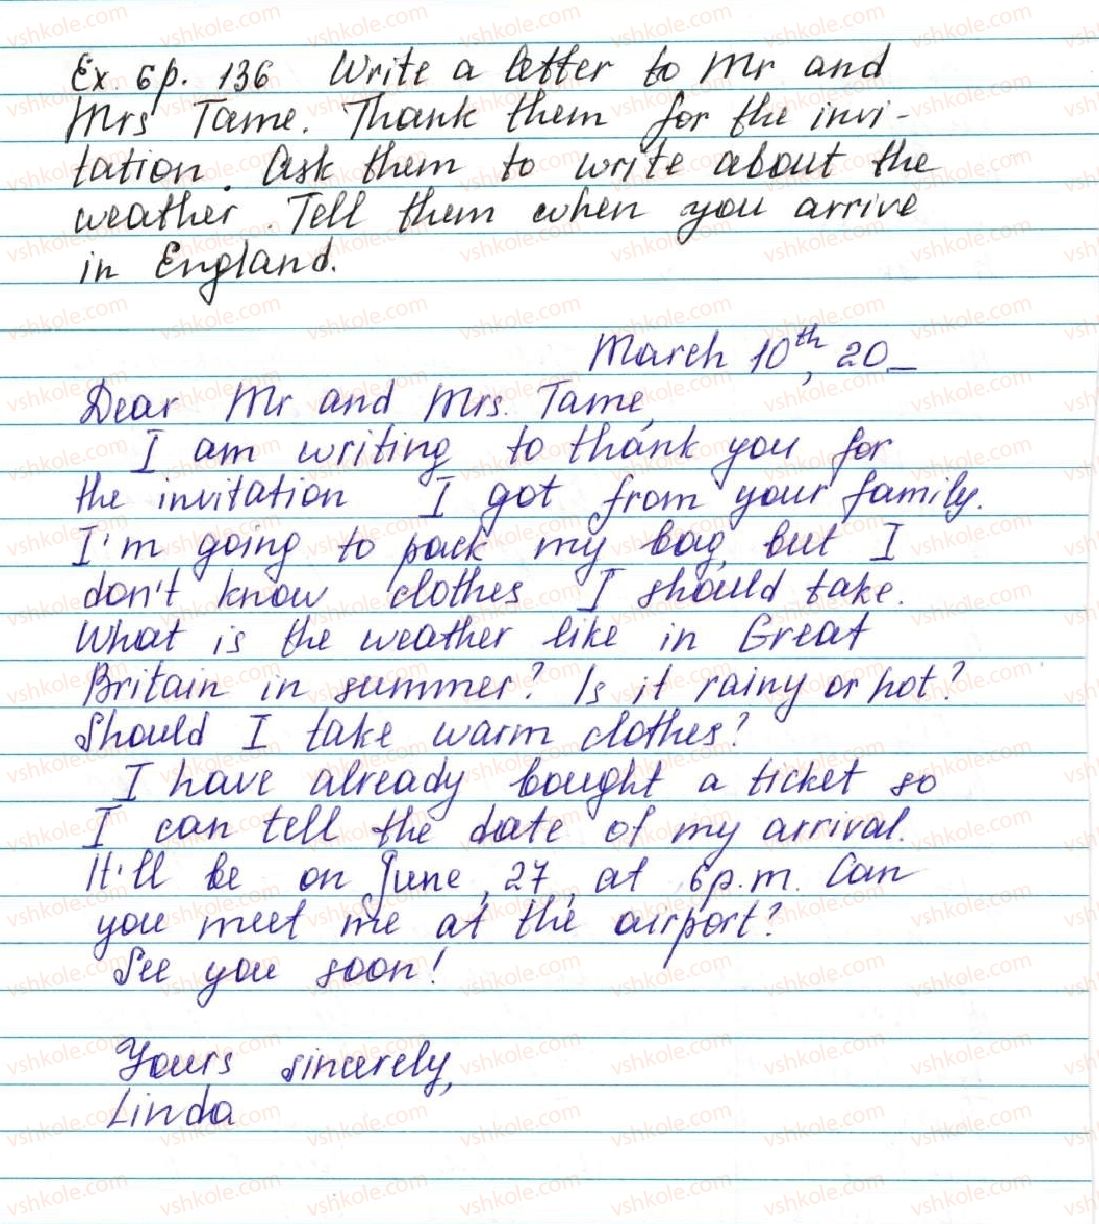 Ex. 6 p. 136 Write a letter to Mr and
Mrs Tame. Thank them for the invi-
tation. Ask them to write about the
weather. Tell them when you arrive
in England.
March 10th, 20_
Dear Mr and Mrs. Tame,
I am writing to thank you for
the invitation I got from your family.
I'm going to pack my bag, but I
don't know clothes I should take.
What is the weather like in Great
Britain in summer? Is it rainy or hot?
Should I take warm clothes?
I have already bought a ticket so
I can tell the date of my arrival.
It'll be on June, 27, at 6 p.m. Can
you meet me at the airport?
See you soon!
Yours sincerely,
Linda